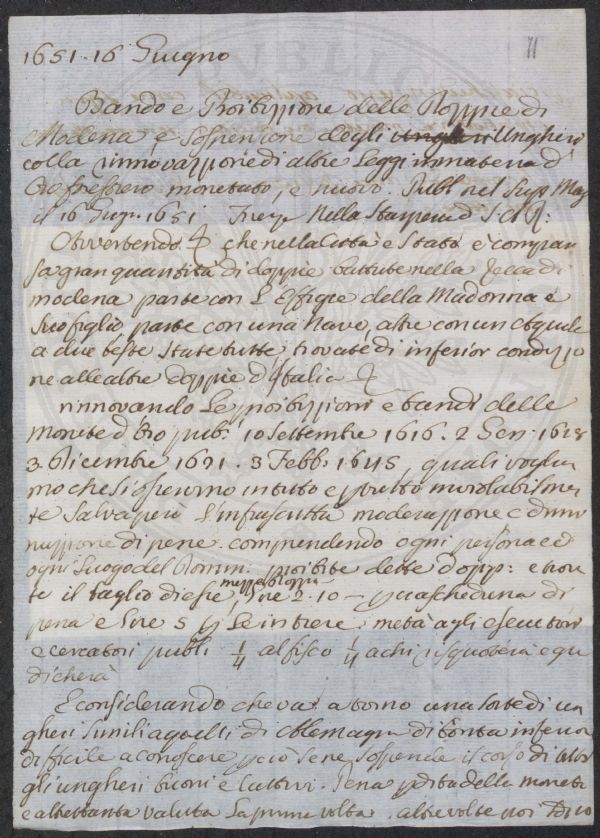 1651. 16 Giugno
71
Bando e Proibizzione delle Doppie di
Modena e Sospenzione degli Ungheri
colla rinnovazzione di altre Leggi in materia d'
Oro forestiero monetato, e nuovo. Publ. nel Sup. Mag
il 16 Giug. 1651 Firenze Nella Stamperia di S. A. S.:
Avvertendo che nella Città e Stato è compar
sa gran quantità di doppie battute nella Zecca di
modena parte con L'Effigie della Madonna e
suo figlio, parte con una Nave, altre con un Aquila
a due teste state tutte trovate di inferior condizzio
ne alle altre doppie d'Italia
rinnovando Le proibizzioni e bandi delle
monete d'Oro pub. 10 Settembre 1616. 2 Gen. 1618
3. Dicembre 1621. 3 Febb. 1645, quali voglia
mo che si osservino in tutto e per tutto inviolabilme
te salva però L'infrascritta moderazzione e dimi
nuzzione di pene. comprendendo ogni persona ed
ogni Luogo del Domin. proibite dette dopp: e
te il taglio di esse, mezze doppie Lire 2.10 — per ciascheduna di
pena e Lire 5 per Le intiere. metà agli esecutori
e cercatori publi. ¼ al fisco ¼ a chi risquoterà e giu
dicherà
E considerando che va a torno una sorte di un
gheri simili a quelli di Alemagna di bontà inferior
difficile a conoscere perciò se ne sospende il corso di tutti
gli ungheri buoni e cattivi. Pena perdita della moneta
e altrettanta valuta La prima volta. altre volte poi